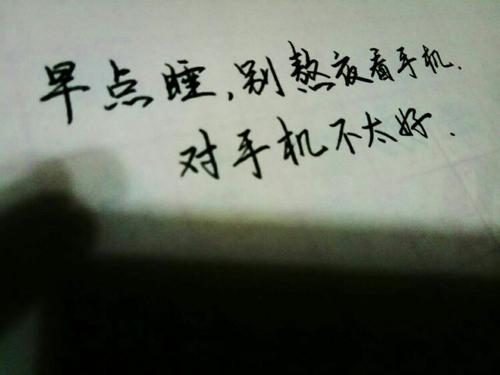 早点睡,别熬夜看手机.
对手机不太好.